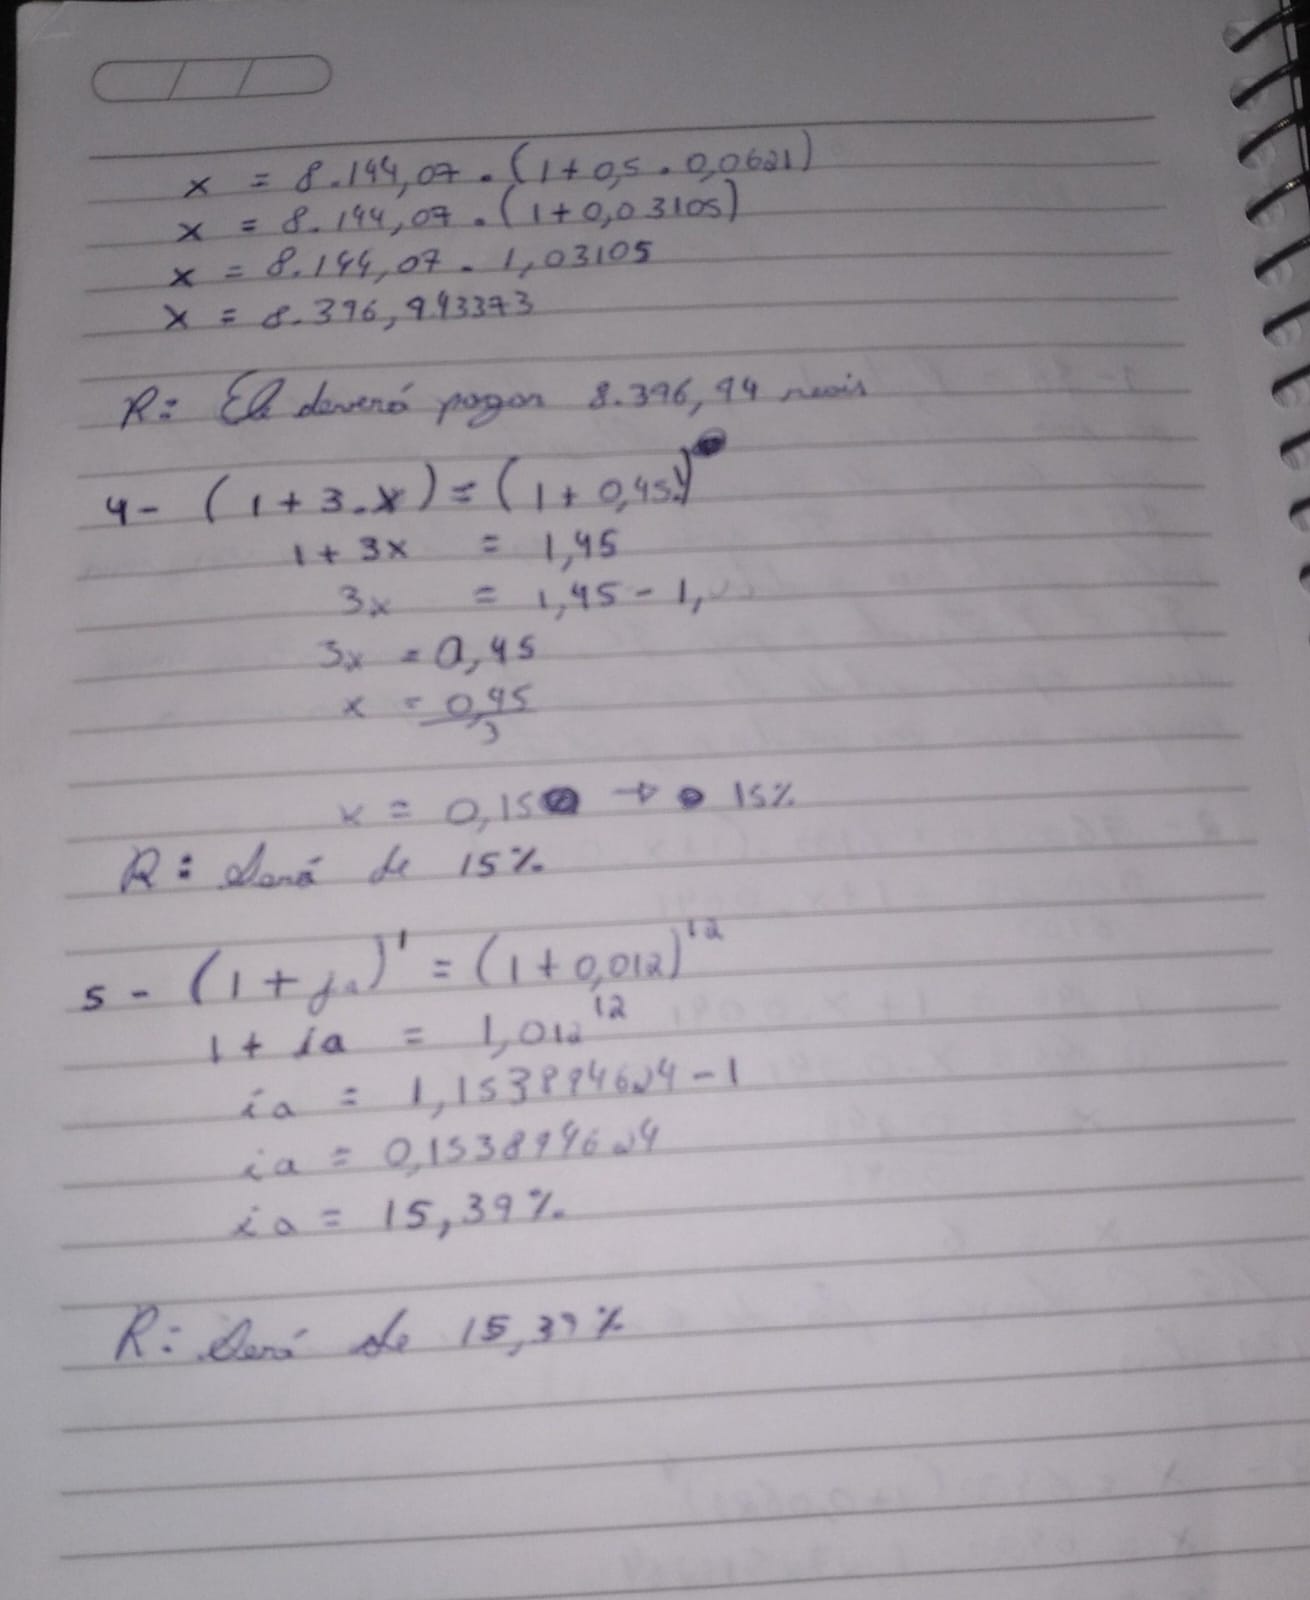 x = 8.144,07 . (1+0,5 . 0,0621)
x = 8.144,07 . (1+0,03105)
x = 8.144,07 . 1,03105
x = 8.396,943373
R: Ele deverá pagar 8.396,94 reais
4- (1+3.x) = (1+0,45)
1+3x = 1,45
3x = 1,45 - 1,
3x = 0,45
x = 0,45
3
x = 0,15 → 15%
R: Será de 15%
5- (1+ja)¹ = (1+0,012)¹²
1+ia = 1,012¹²
ia = 1,153894624-1
ia = 0,153894624
ia = 15,39%
R: Será de 15,39%